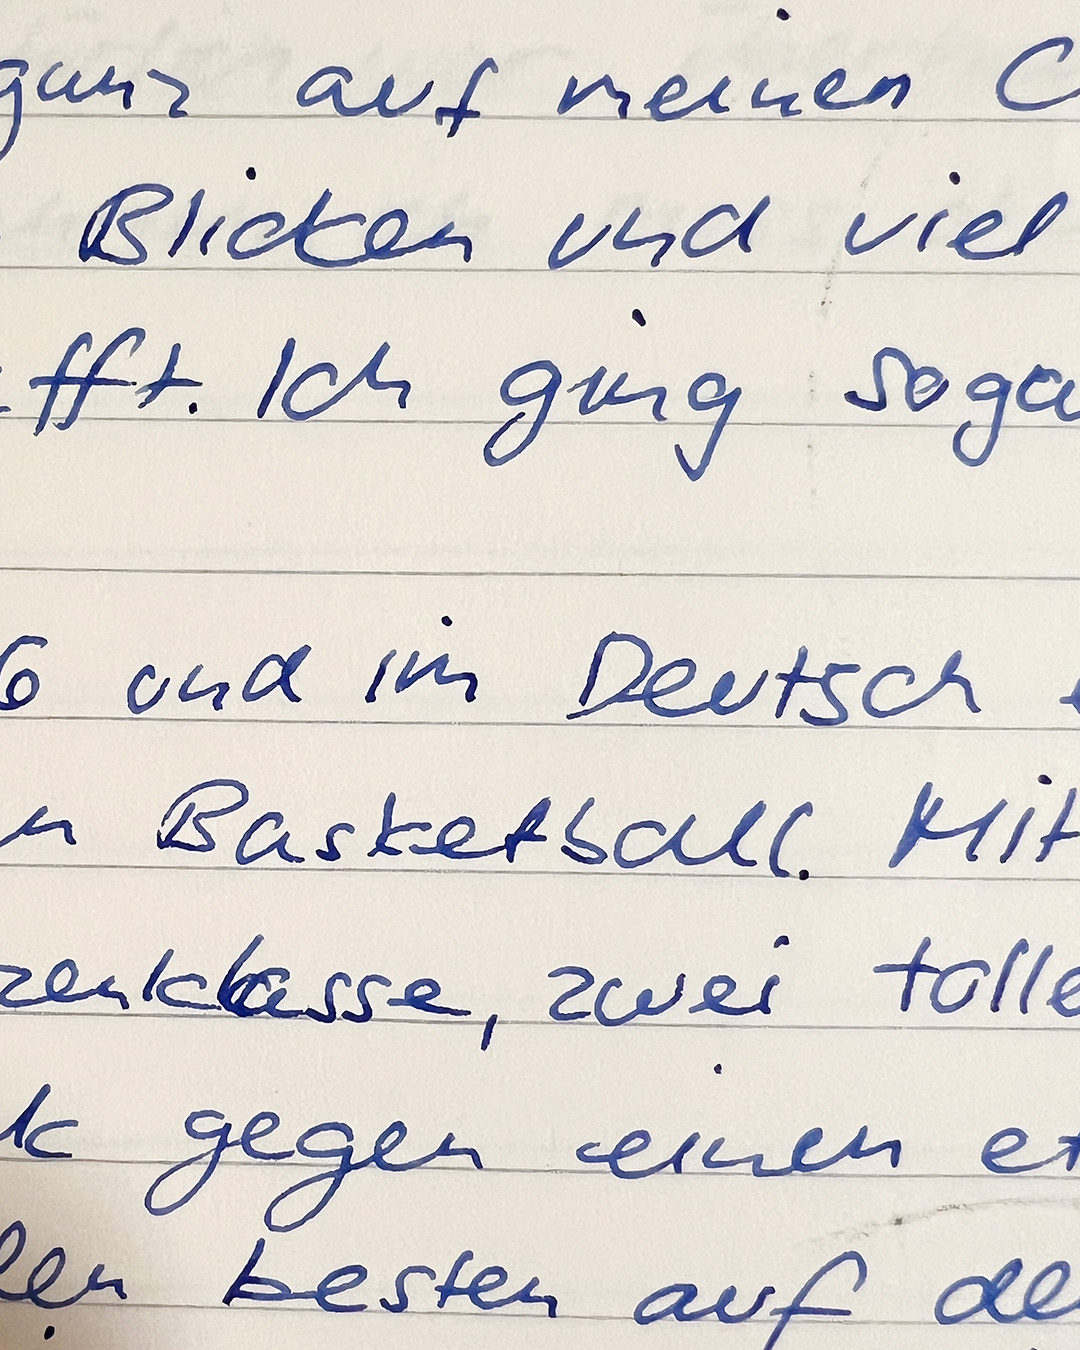 ganz auf meinen
Blicken und viel
fft. Ich ging soga
6 und im Deutsch
n Basketball. Mit
zenklasse, zwei tolle
k gegen einen et
len besten auf de